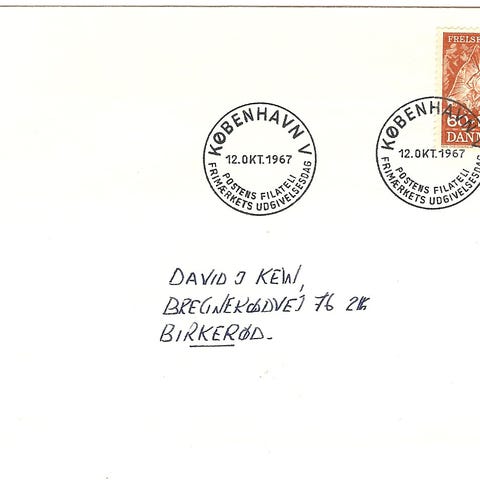 FRELS
60
DANM
KØBENHAVN V
12.OKT.1967
POSTENS FILATELI
FRIMÆRKETS UDGIVELSESDAG
KØBENHAVN V
12.OKT.1967
POSTENS FILATELI
FRIMÆRKETS UDGIVELSESDAG
DAVID J KEW,
BREGNERØDVEJ 76
BIRKERØD.